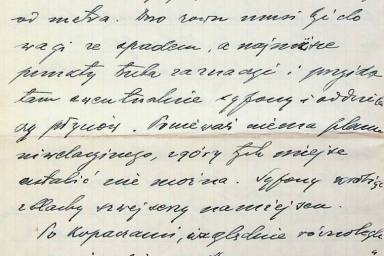 od metra. Dno rowu musi być do
wagi ze spadem, a najniższe
punkty trzeba zaznaczyć i przyjdą
tam ewentualnie syfony i
płynów. Ponieważ niema planu
niwelacyjnego, z góry tych miejsc
ustalić nie można. Syfony zrobię
z blachy na miejscu.
Po kopaniami, względnie równolegle